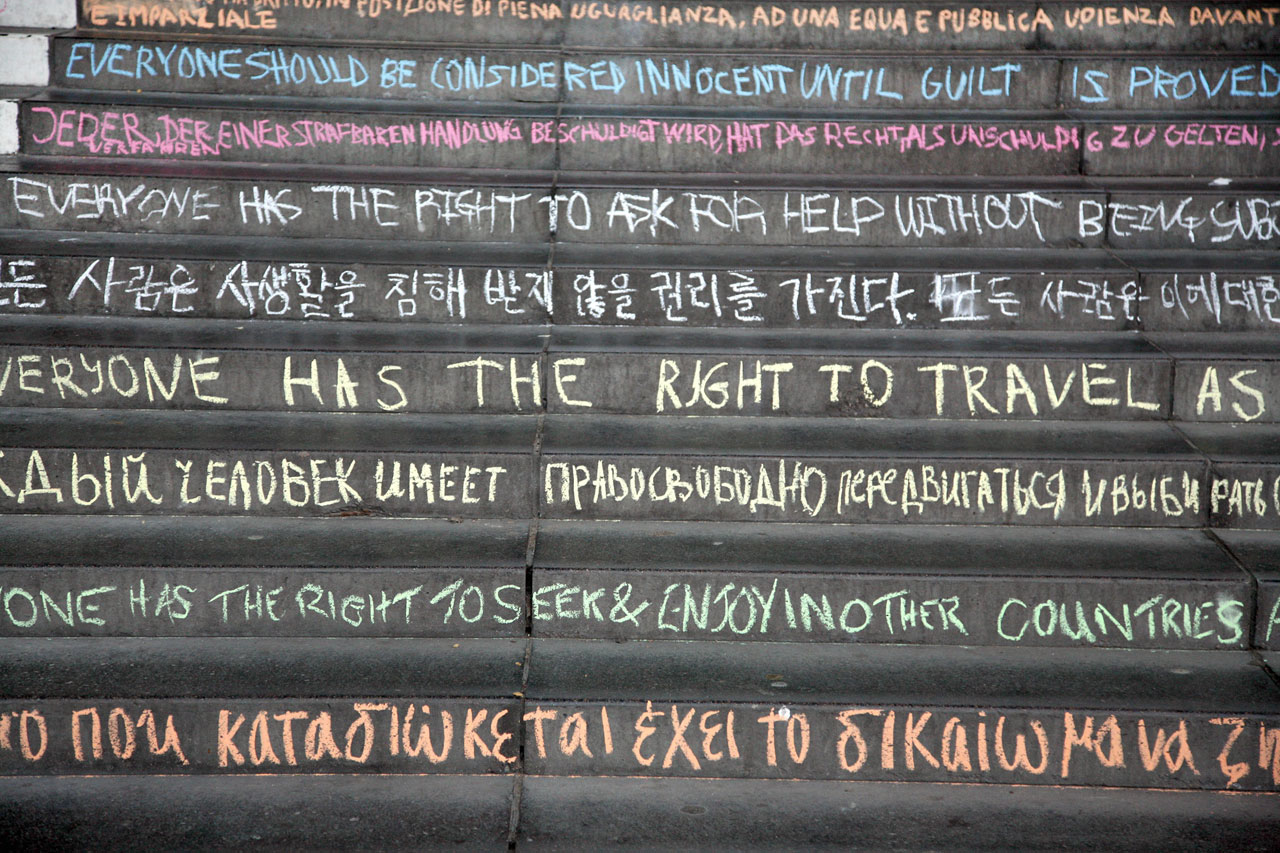 IN POSIZIONE DI PIENA UGUAGLIANZA, AD UNA EQUA E PUBBLICA UDIENZA DAVANT
E IMPARZIALE
EVERYONE SHOULD BE CONSIDERED INNOCENT UNTIL GUILT IS PROVED
JEDER, DER EINER STRAFBAREN HANDLUNG BESCHULDIGT WIRD, HAT DAS RECHT, ALS UNSCHULDIG ZU GELTEN,
VERFAHREN
EVERYONE HAS THE RIGHT TO ASK FOR HELP WITHOUT BEING SUBJ
모든 사람은 사생활을 침해 받지 않을 권리를 가진다. 모든 사람은 이에 대한
VERYONE HAS THE RIGHT TO TRAVEL AS
ЖДЫЙ ЧЕЛОВЕК ИМЕЕТ ПРАВО СВОБОДНО ПЕРЕДВИГАТЬСЯ И ВЫБИРАТЬ
YONE HAS THE RIGHT TO SEEK & ENJOY IN OTHER COUNTRIES
που καταδιώκεται έχει το δικαίωμα να ζη